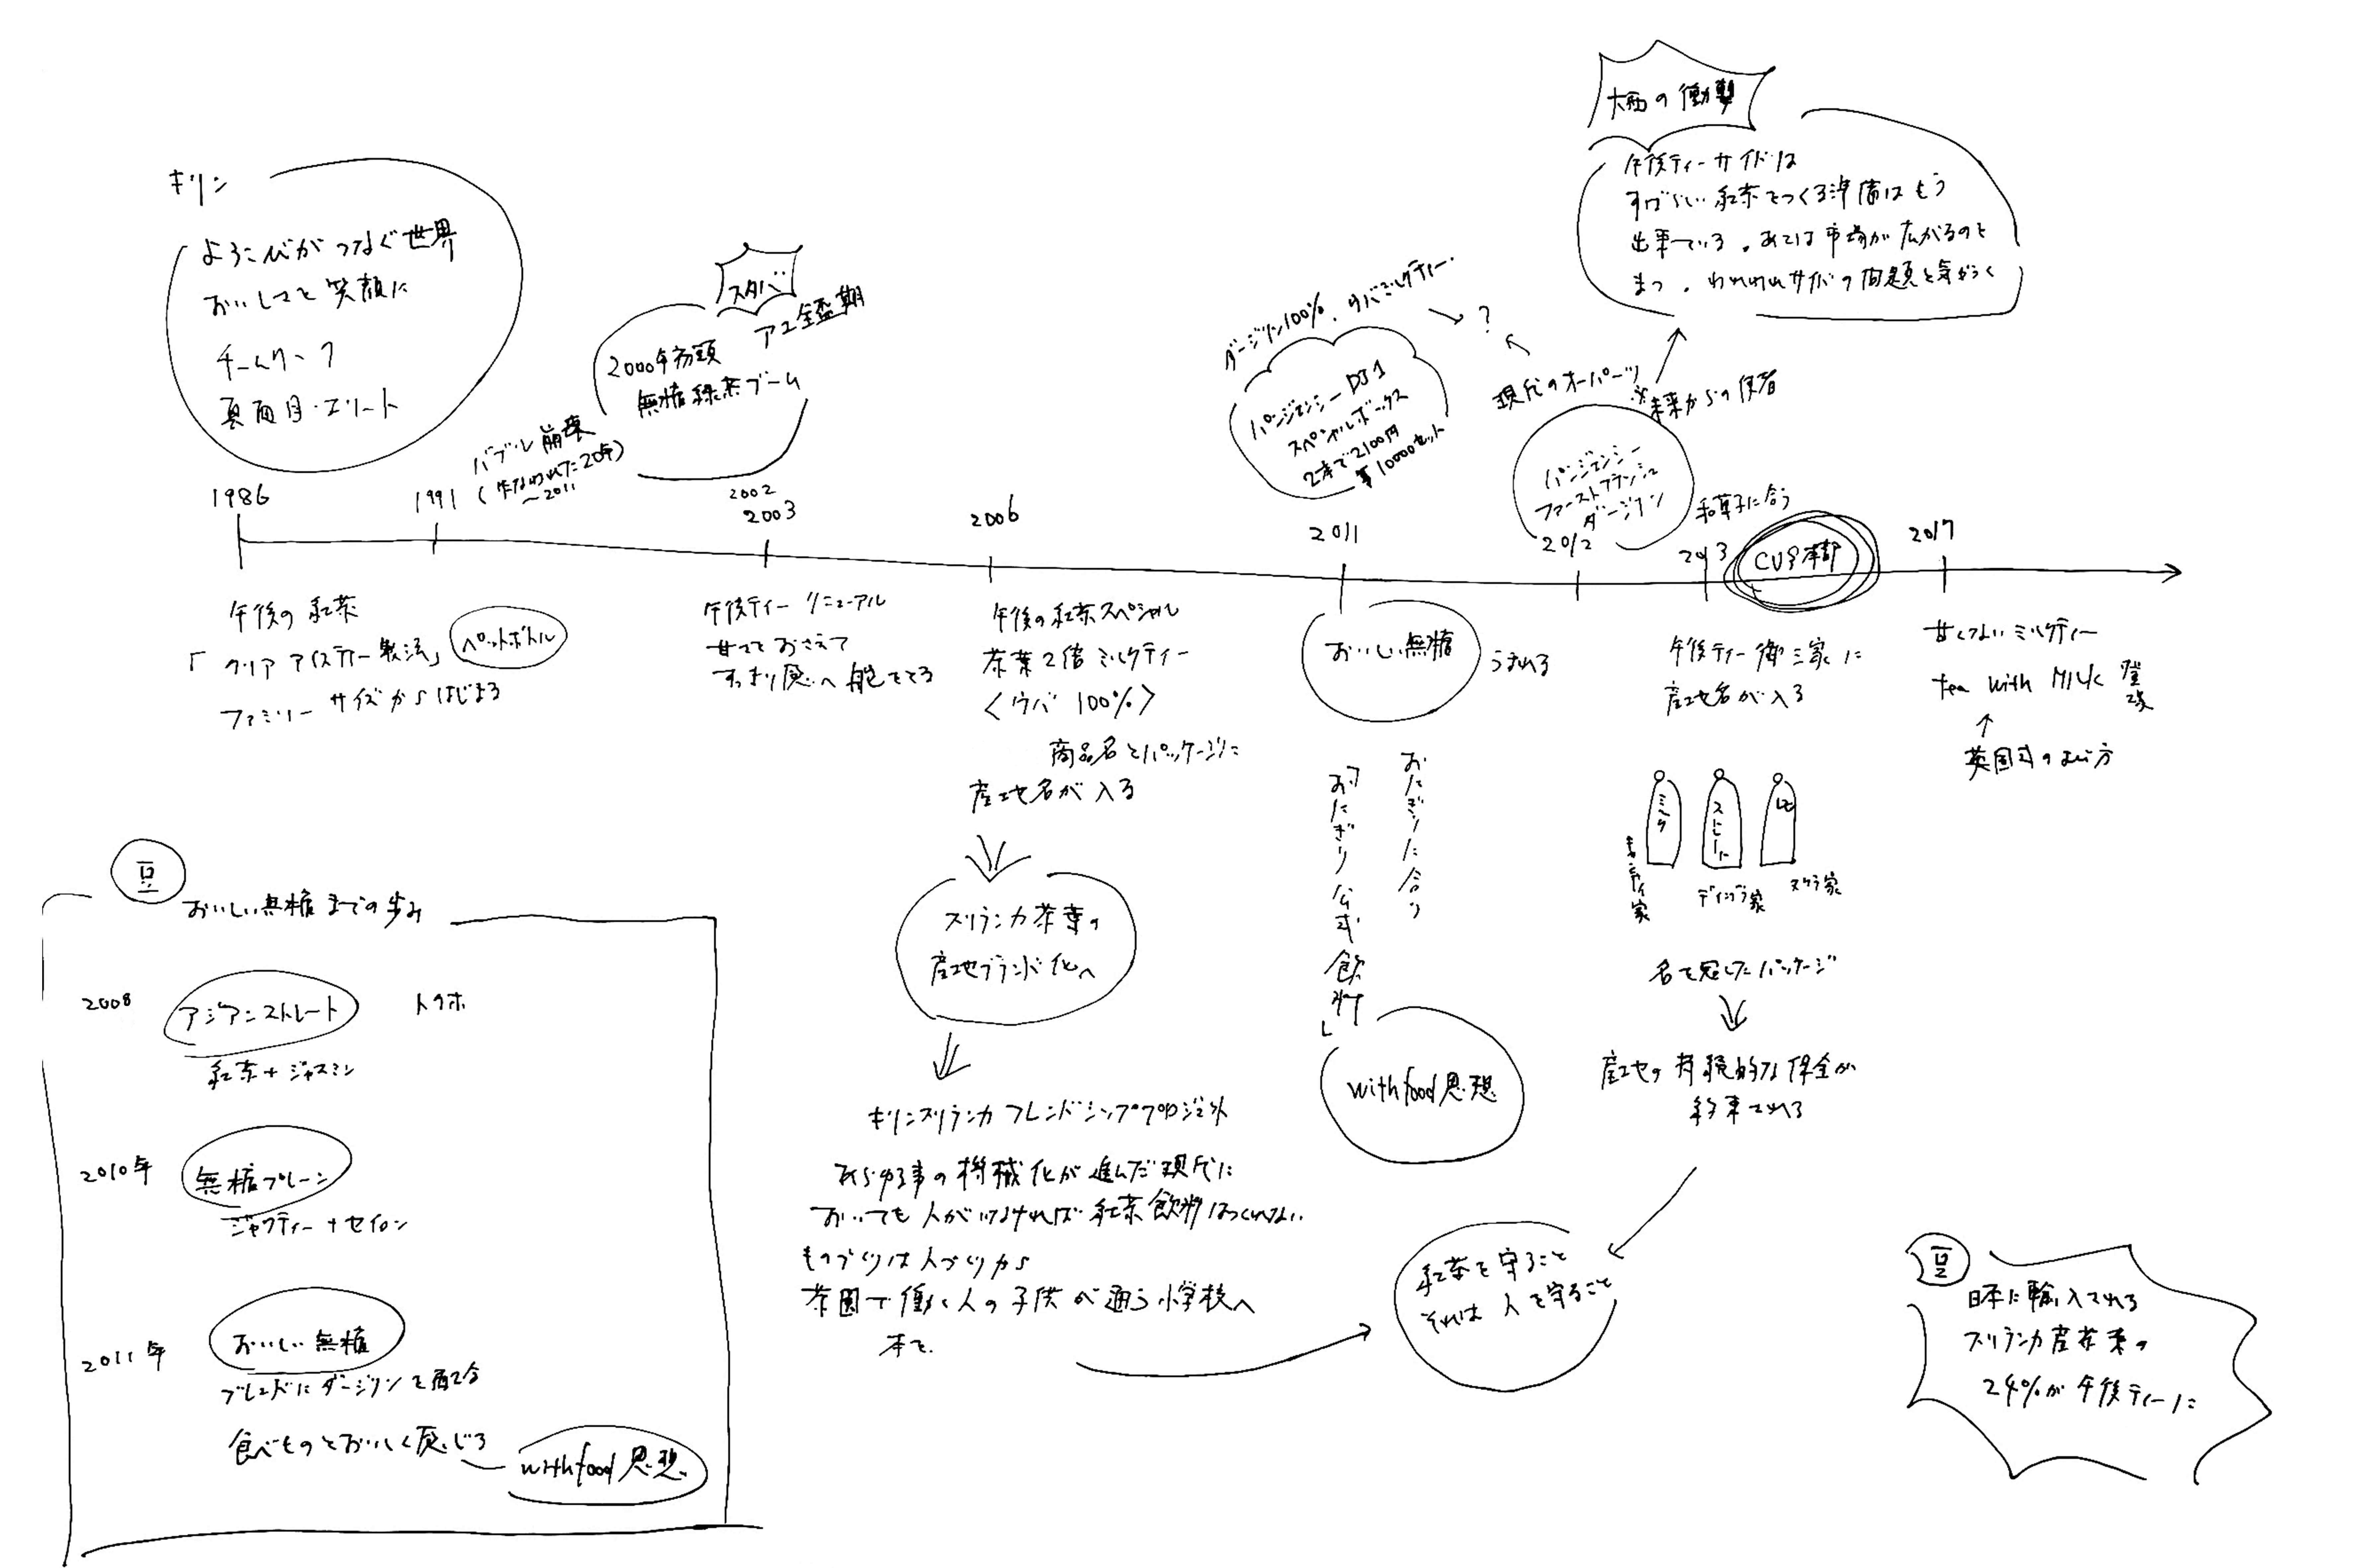 キリン
よろこびがつなぐ世界
おいしさを笑顔に
チームワーク
真面目・エリート
バブル崩壊
(失なわれた20年)
〜2011
スタバ
アユ全盛期
2000年初頭
無糖緑茶ブーム
ダージリン100%、ウバミルクティー
?
パンジェンシーDJ1
スペシャルボックス
2本で2100円
10000セット
現代のオーパーツ
※未来からの使者
パンジェンシー
ファーストフラッシュ
ダージリン
和菓子に合う
午後ティーサイドは
すばらしい紅茶をつくる準備はもう
出来ている。あとは市場が広がるのを
まつ。われわれサイドの問題と気がつく
1986
1991
2002
2003
2006
2011
2012
2013
2017
午後の紅茶
「クリアアイスティー製法」
ペットボトル
ファミリーサイズからはじまる
午後ティーリニューアル
甘さをおさえて
すっきり感へ舵をとる
午後の紅茶スペシャル
茶葉2倍ミルクティー
<ウバ100%>
商品名とパッケージに
産地名が入る
スリランカ茶葉の
産地ブランド化へ
キリンスリランカフレンドシッププロジェクト
あらゆる事の機械化が進んだ現代に
おいても人がいなければ紅茶飲料はつくれない
ものづくりは人づくりから
茶園で働く人の子供が通う小学校へ
本を
おいしい無糖
うまれる
おにぎりに合う
「おにぎり公式飲料」
withfood思想
午後ティー御三家に
産地名が入る
ミルク
ストレート
レモン
キャンディ家
ディンブラ家
ヌワラ家
名を冠したパッケージ
産地の持続的な保全が
約束される
紅茶を守ること
それは人を守ること
甘くないミルクティー
tea with MILK 登場
英国式のよび方
豆
おいしい無糖までの歩み
2008
アジアンストレート
トクホ
紅茶+ジャスミン
2010年
無糖プレーン
ジャワティー+セイロン
2011年
おいしい無糖
ブレンドにダージリンを配合
食べものをおいしく感じる
withfood思想
豆
日本に輸入される
スリランカ産茶葉の
24%が午後ティーに